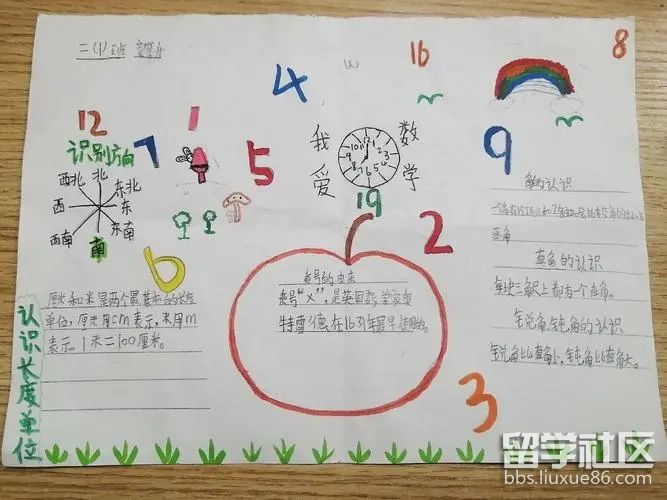 二(1)班
4
16
8
12
1
识别方向
7
5
我爱数学
9
西北 北 东北
西 东
西南 南 东南
10 11 12 1 2 3 4 5 6 7 8 9
19
2
6
角的认识
一个角有1个顶点和2条边
画角
直角的认识
每块三角尺上都有一个直角。
锐角、钝角的认识
锐角比直角小,钝角比直角大。
乘号的由来
乘号“×”,是英国数学家奥
特雷德在1631年最早使用的。
认识长度单位
厘米和米是两个最基本的长度
单位,厘米用cm表示,米用m
表示。1米=100厘米。
3
留学社区
bbs.liuxue86.com